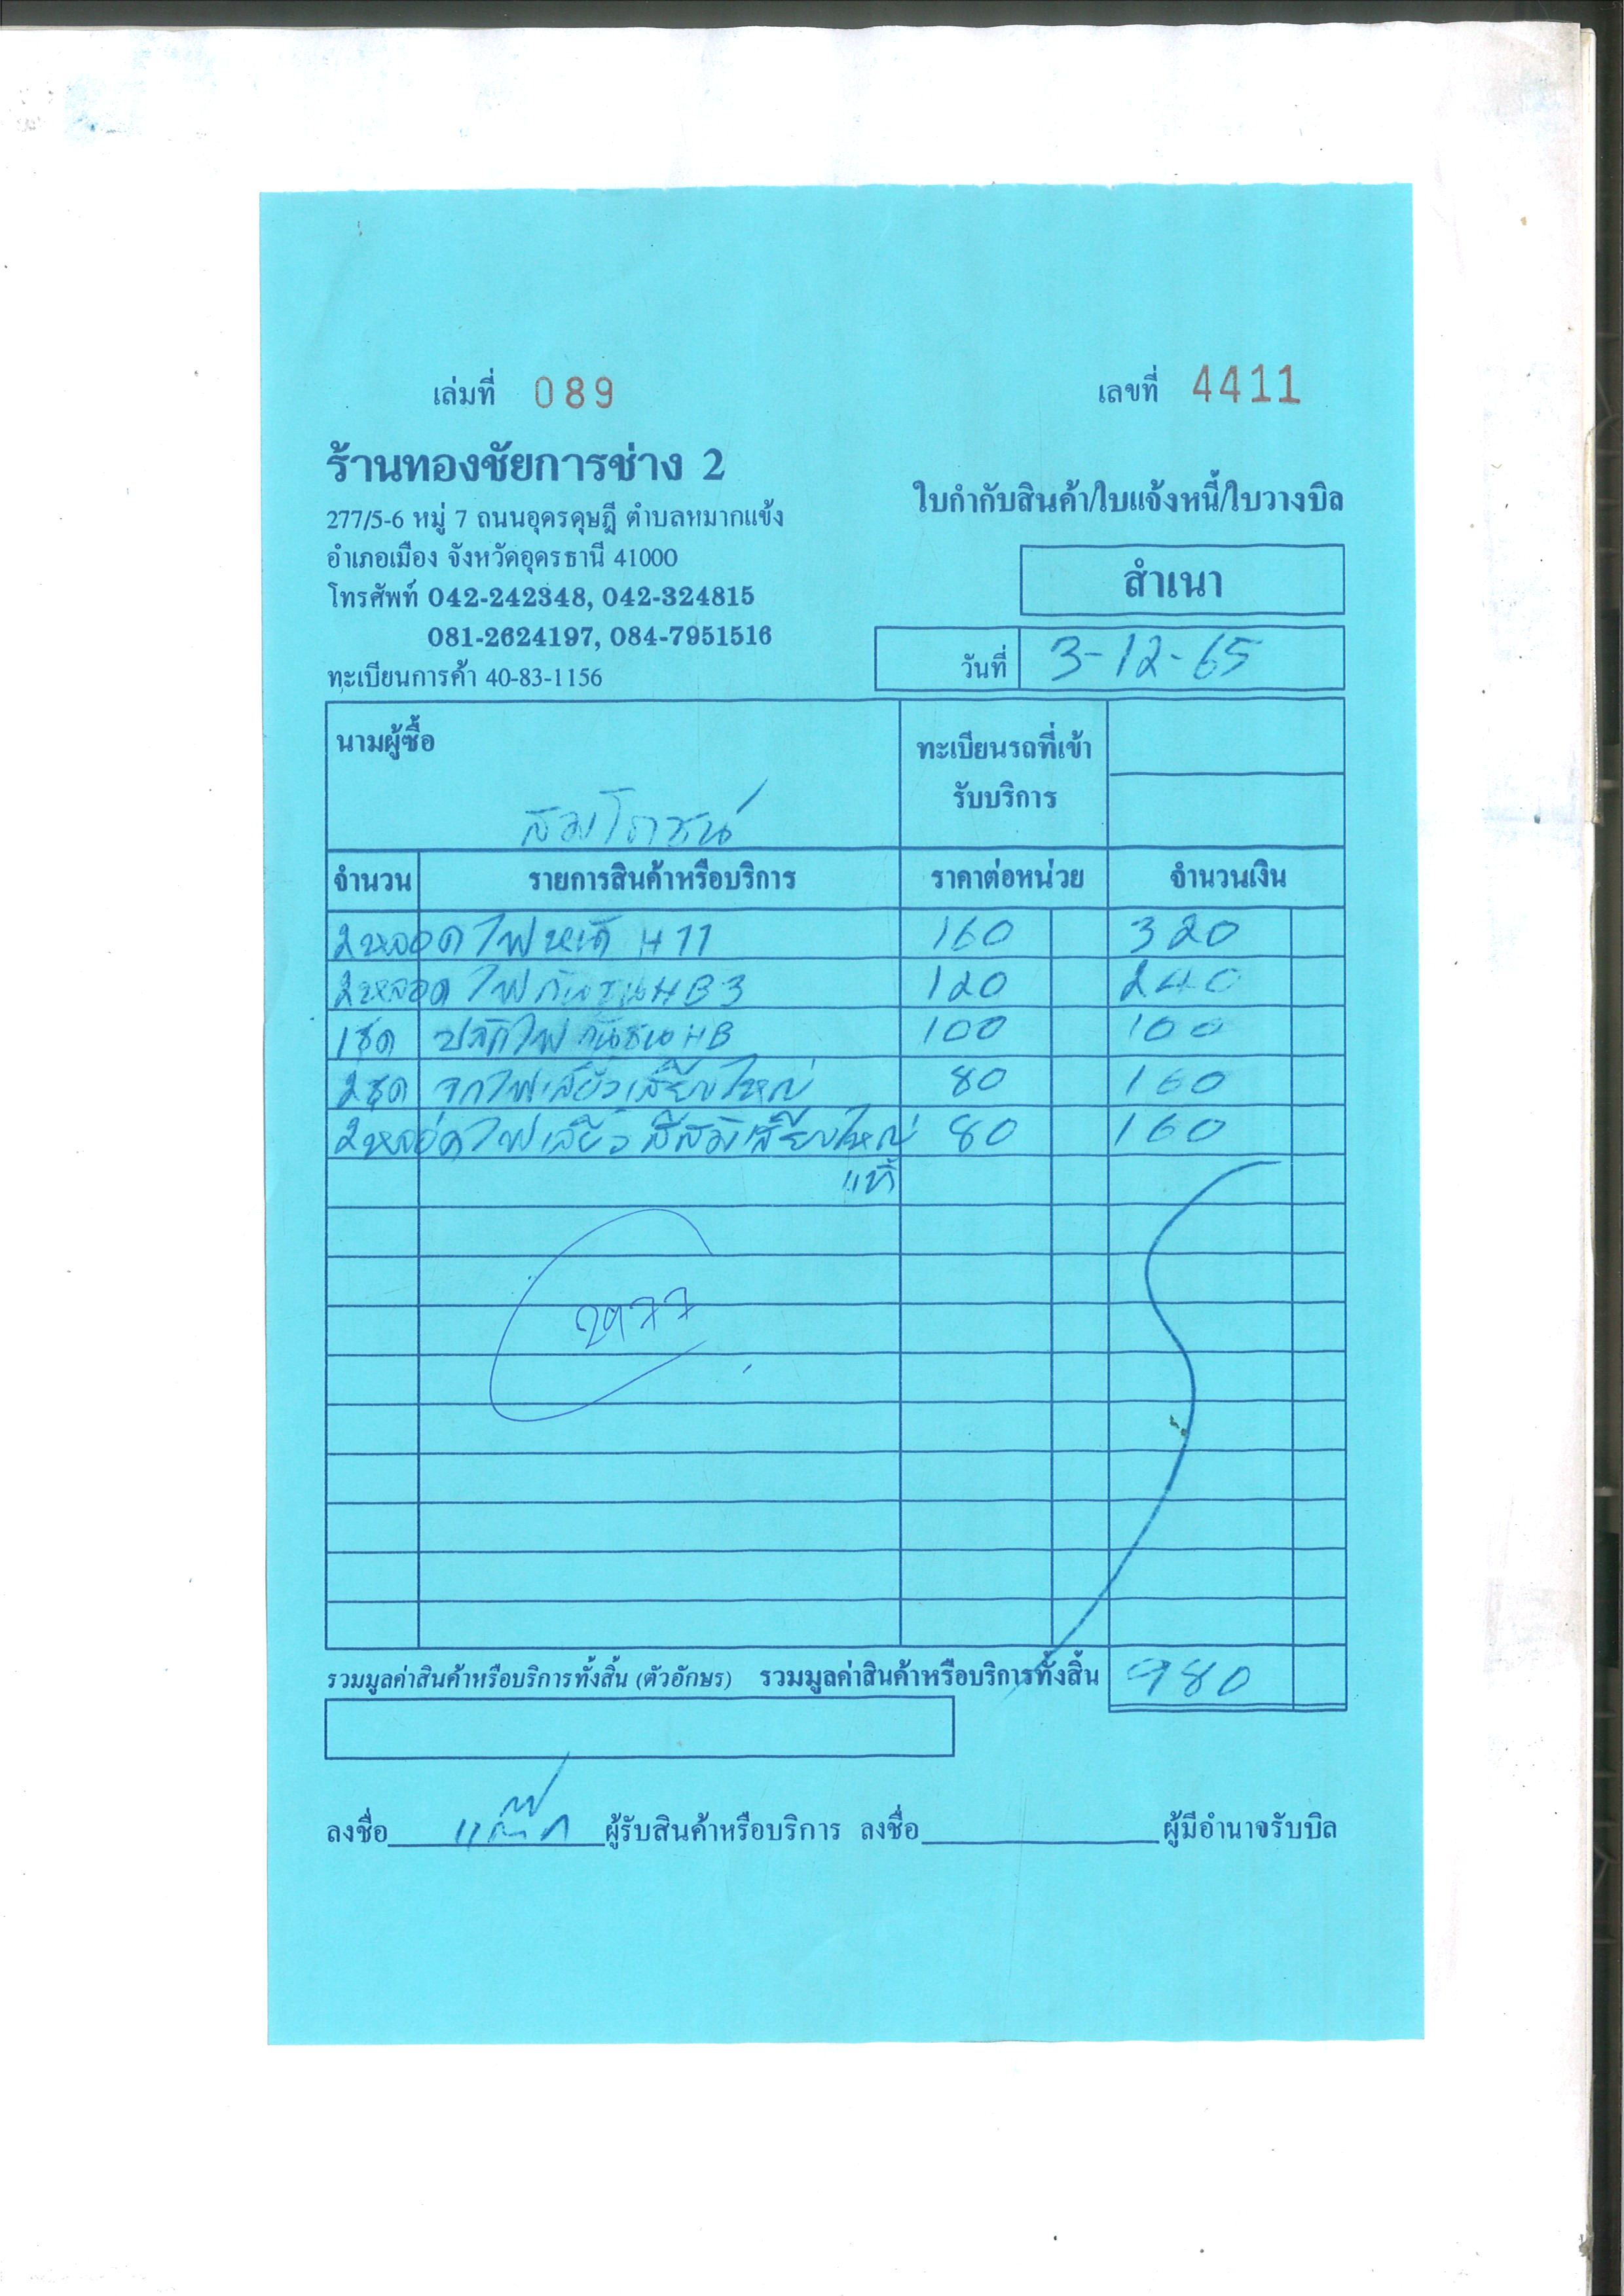 เล่มที่ 089
เลขที่ 4411
ร้านทองชัยการช่าง 2
277/5-6 หมู่ 7 ถนนอุดรดุษฎี ตำบลหมากแข้ง
อำเภอเมือง จังหวัดอุดรธานี 41000
โทรศัพท์ 042-242348, 042-324815
081-2624197, 084-7951516
ทะเบียนการค้า 40-83-1156
ใบกำกับสินค้า/ใบแจ้งหนี้/ใบวางบิล
สำเนา
วันที่ 3-12-65
นามผู้ซื้อ
ทะเบียนรถที่เข้า
รับบริการ
จำนวน รายการสินค้าหรือบริการ ราคาต่อหน่วย จำนวนเงิน
2หลอด ไฟหน้า H11 160 320
2หลอด ไฟกันชนHB3 120 240
1ชุด ปลั๊กไฟกันชนHB 100 100
2ชุด ไฟเลี้ยวเสียบใหญ่ 80 160
2หลอด ไฟเลี้ยว สีส้มเสียบใหญ่ 80 160
แท้
2977
รวมมูลค่าสินค้าหรือบริการทั้งสิ้น (ตัวอักษร) รวมมูลค่าสินค้าหรือบริการทั้งสิ้น 980
ลงชื่อ ผู้รับสินค้าหรือบริการ ลงชื่อ ผู้มีอำนาจรับบิล